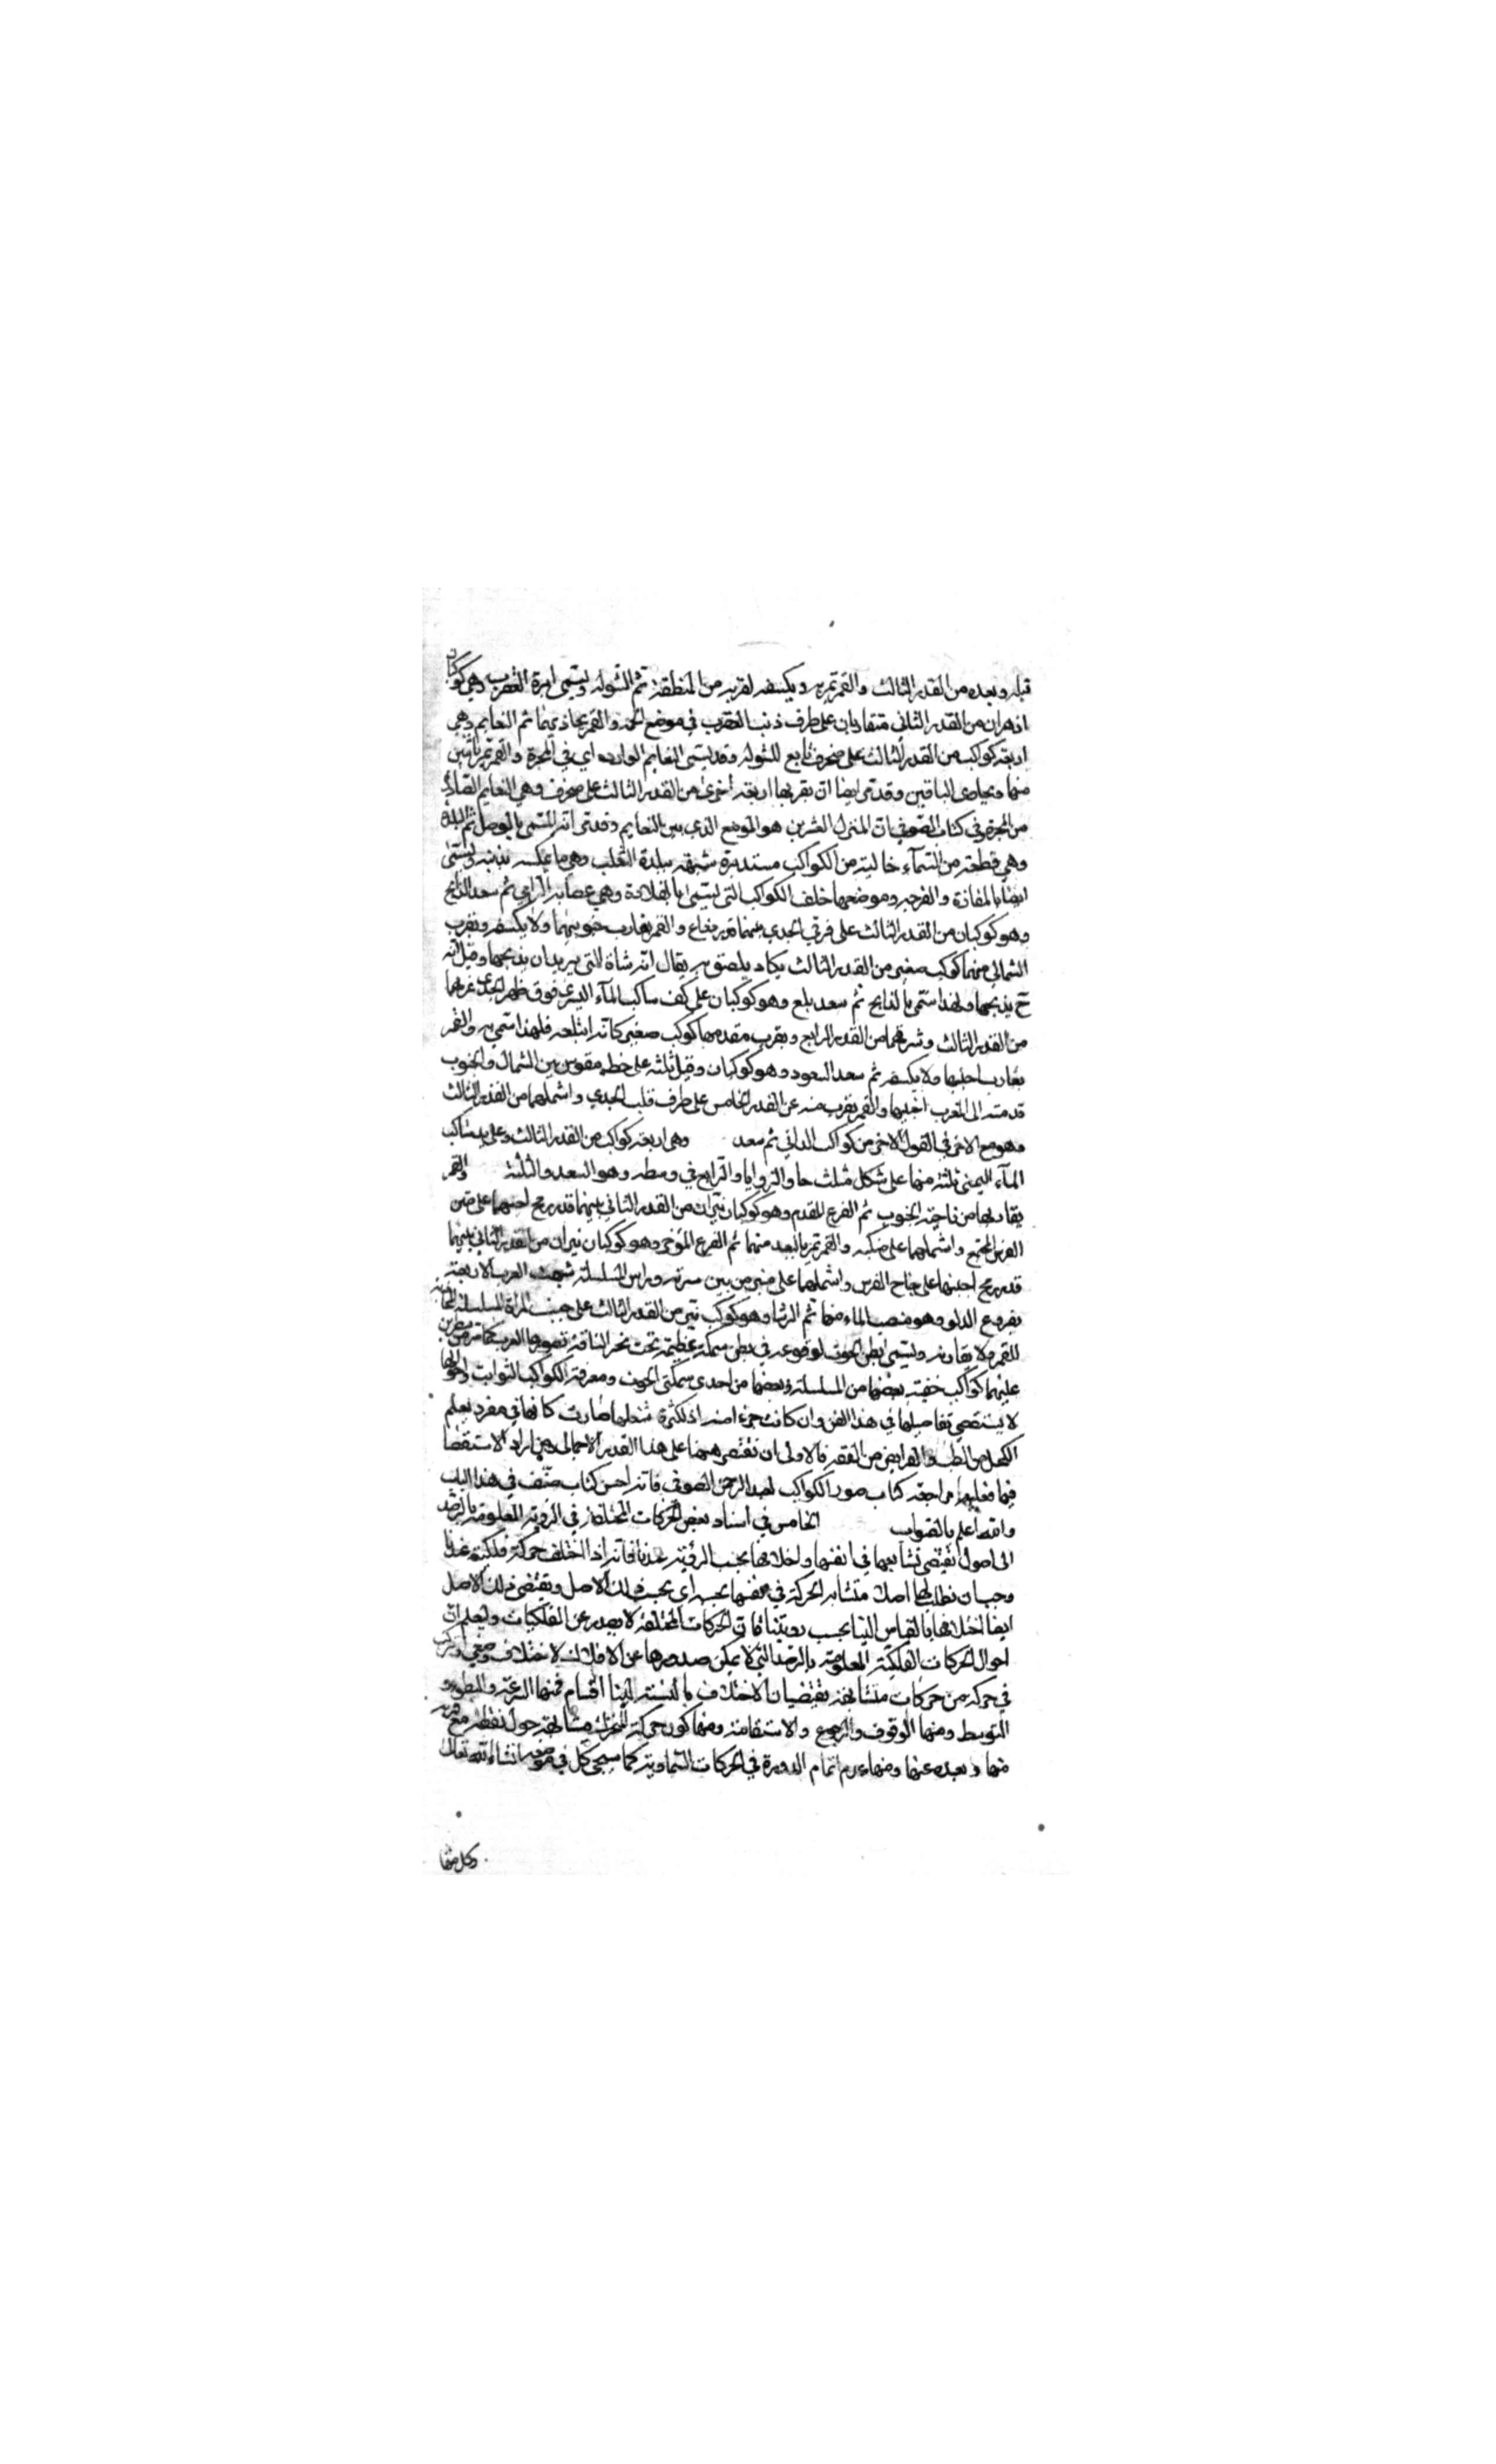 قبله وبعده من القدر الثالث والقمر يمر به ويكسفه لقربه من المنطقة ثم الشولة وتسمى ابرة العقرب وهي كوكبان
ازهران من القدر الثاني متقاربان على طرف ذنب العقرب في موضع الحمة والقمر يحاذيهما ثم النعايم وهي
اربعة كواكب من القدر الثالث على منحرف تابع للشولة وقد يسمى النعايم الواردة اي في المجرة والقمر يمر باثنين
منها ويحاذى الباقيين وقد مر ايضا ان بقربها اربعة اخرى من القدر الثالث على منحرف وهي النعايم الصادرة
من المجرة وفي كتاب الصوفي ان المنزل العشرين هو الموضع الذي بين النعايم وقد مر انه المسمى بالوصل ثم البلدة
وهي قطعة من السمآء خالية من الكواكب مستديرة شبهت ببلدة الثعلب وهي ما يكنسه بذنبه ويسمى
ايضا بالمفازة والفرجه وموضعها خلف الكواكب التى يسمى بالقلادة وهي عصابة الرامي ثم سعد الذابح
وهو كوكبان من القدر الثالث على قرني الجدي بينهما قدر ذراع والقمر يقارب جنوبيهما ولا يكسفه وبقرب
الشمالي منهما كوكب صغير من القدر الثالث يكاد يلصق به يقال انه شاة التي يريد ان يذبحها وقيل انه
ح يذبحها ولهذا سمى بالذابح ثم سعد بلع وهو كوكبان على كف ساكب المآء اليسرى فوق ظهر الجدي غربيهما
من القدر الثالث وشرقيهما من القدر الرابع وبقرب مقدمهما كوكب صغير كانه ابتلعه فلهذا سمي به والقمر
يقارب اجنبهما ولا يكسفه ثم سعد السعود وهو كوكبان وقيل ثلثة على خط مقوس بين الشمال والجنوب
الى المغرب اجنبهما والقمر يقرب منه عن القدر الخامس على طرف ذنب الجدي واشملهما من القدر الثالث
وهو مع الاخر في القول الاخر من كواكب الدالي ثم سعد وهى اربعة كواكب من القدر الثالث وعلى يد ساكب
المآء اليمنى ثلثة منها على شكل مثلث حاد الزوايا والرابع في وسطه وهو السعد والثلثة والقمر
يقاربها من ناحية الجنوب ثم الفرغ المقدم وهو كوكبان نيران من القدر الثاني بينهما قدر رمح اجنبهما على متن
الفرس المجنح واشملهما على منكبه والقمر يمر بالبعد منهما ثم الفرغ المؤخر وهو كوكبان نيران من القدر الثاني بينهما
قدر رمح اجنبهما على جناح الفرس واشملهما على مشترك بين سرته وراس المسلسلة شبهت العرب الاربعة
بفروغ الدلو وهو منصب الماء منها ثم الرشا وهو كوكب نير من القدر الثالث على جنب المراة المسلسلة
للقمر ولا يقاربه ويسمى بطن الحوت لوقوعه في بطن سمكة عظيمة تحت نحر الناقة تصورها العرب كما مر من سطرين
عليهما كواكب خفية بعضها من المسلسلة وبعضها من احدى سمكتي الحوت ومعرفة الكواكب الثوابت واحوالها
لا يستقصي تفاصيلها في هذا الفن وان كانت جزء امنه اذ لكثرة شغلها صارت كانها فن مفرد كعلم
الكحل من الطب والفرايض من الفقه فالاولى ان نقتصر ههنا على هذا القدر الاجمالي ومن اراد الاستقصا
فيها فعليه مراجعة كتاب صور الكواكب لعبد الرحمن الصوفي فانه احسن كتاب صنف في هذا الباب
والله اعلم بالصواب الخامس في اسناد بعض الحركات المختلفة في الروية المعلومة بالرصد
الى اصول يقتضي تشابهها في انفسها واختلافها بحسب الرؤية عندنا فانه اذا اختلف حركة فلكية عندنا
وجب ان نطلب لها اصلا متشابه الحركة في نفسها بحسبه اي بحسب ذلك الاصل ويقتضي ذلك الاصل
ايضا اختلافها بالقياس الينا بحسب رويتنا فان الحركات المختلفة لا يصدر عن الفلكيات وليعلم ان
احوال الحركات الفلكية المعلومة بالرصد التي لا يمكن صدورها عن الافلاك لاختلاف وضعي او تركب
في حركة من حركات متشابهة يقتضيان الاختلاف بالنسبة الينا اقسام فمنها السرعة والبطوء و
التوسط ومنها الوقوف والرجوع والاستقامة ومنها كون حركة المتحرك متشابهة حول نقطة مع قربه
منها وبعده عنها ومنها عدم اتمام الدورة في الحركات السماوية كما سيجئ كل في موضعه انشاء الله تعالى
وكل منها